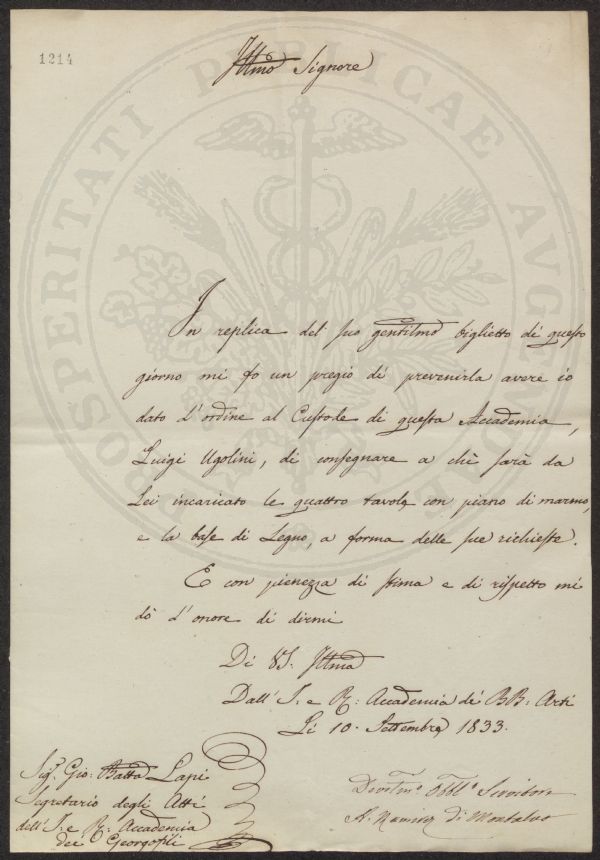 1214
Illmo Signore
In replica del suo gentilmo biglietto di questo
giorno mi fo un pregio di prevenirla avere io
dato l'ordine al Custode di questa Accademia,
Luigi Ugolini, di consegnare a chi sarà da
Lei incaricato le quattro tavole con piano di marmo,
e la base di Legno, a forma delle sue richieste.
E con pienezza di stima e di rispetto mi
dò l'onore di dirmi
Di VS. Illma
Dall'I. e R: Accademia di BB: Arti
Li 10. Settembre 1833.
Sigr. Gio: Batta Lapi
Segretario degli Atti
dell'I. e R: Accademia
dei Georgofili
Devotmo. Obblo. Servitore
A. Ramirez di Montalvo
PROSPERITATI PUBLICAE AUGENDAE